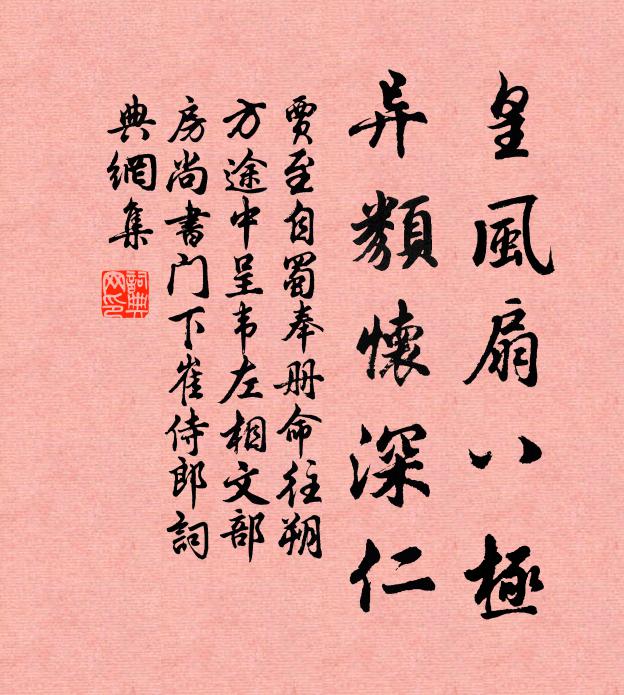 皇風扇八極
异類懷深仁
賈至自蜀奉册命往朔
方途中呈韦左相文部
房尚書门下崔侍郎詞
典網集
詞典
网印